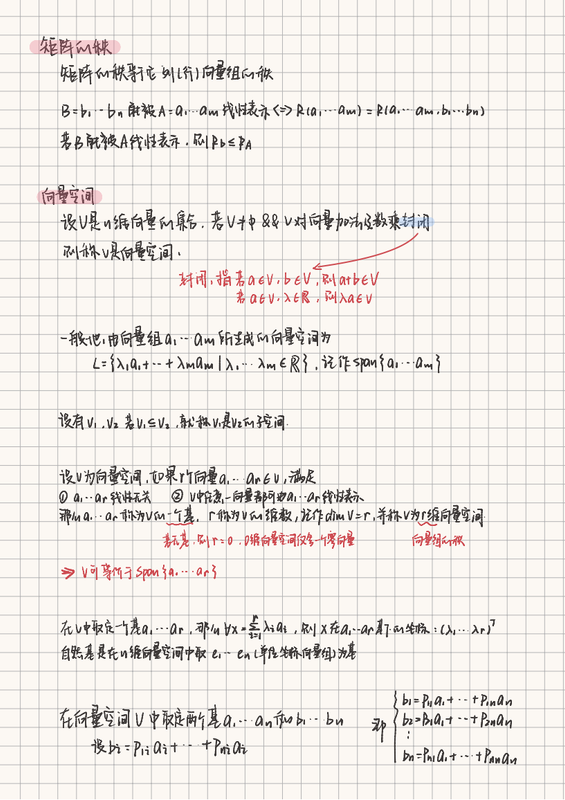 矩阵的秩
矩阵的秩等于它列(行)向量组的秩
B=b₁…bₙ能被A=a₁…aₘ线性表示<=>R(a₁…aₘ)=R(a₁…aₘ,b₁…bₙ)
若B能被A线性表示,则R_B≤R_A
向量空间
设V是n维向量的集合,若V≠φ && V对向量加法及数乘封闭
则称V是向量空间,
封闭,指若a∈V,b∈V,则a+b∈V
若a∈V,λ∈R,则λa∈V
一般地,由向量组a₁…aₘ所生成的向量空间为
L={λ₁a₁+…+λₘaₘ|λ₁…λₘ∈R},记作span{a₁…aₘ}
设有V₁,V₂ 若V₁⊆V₂,就称V₁是V₂的子空间.
设V为向量空间,如果r个向量a₁…aᵣ∈V,满足
① a₁…aᵣ线性无关 ② V中任意一向量都可由a₁…aᵣ线性表示
那么a₁…aᵣ称为V的一个基,r称为V的维数,记作dimV=r,并称V为r维向量空间
若无基,则r=0,0维向量空间仅含一个零向量 向量组的秩
=> V可等价于span{a₁…aᵣ}
在V中取定一个基a₁…aᵣ,那么∀x=∑ᵢ₌₁ʳλᵢaᵢ,则x在a₁…aᵣ基下的坐标:(λ₁…λᵣ)ᵀ
自然基是在n维向量空间中取e₁…eₙ(单位坐标向量组)为基
在向量空间V中取定两个基a₁…aₙ和b₁…bₙ
设bᵢ=p₁ᵢaᵢ+…+pₙᵢaᵢ
即
b₁=p₁₁a₁+…+p₁ₙaₙ
b₂=p₂₁a₁+…+p₂ₙaₙ
⋮
bₙ=pₙ₁a₁+…+pₙₙaₙ